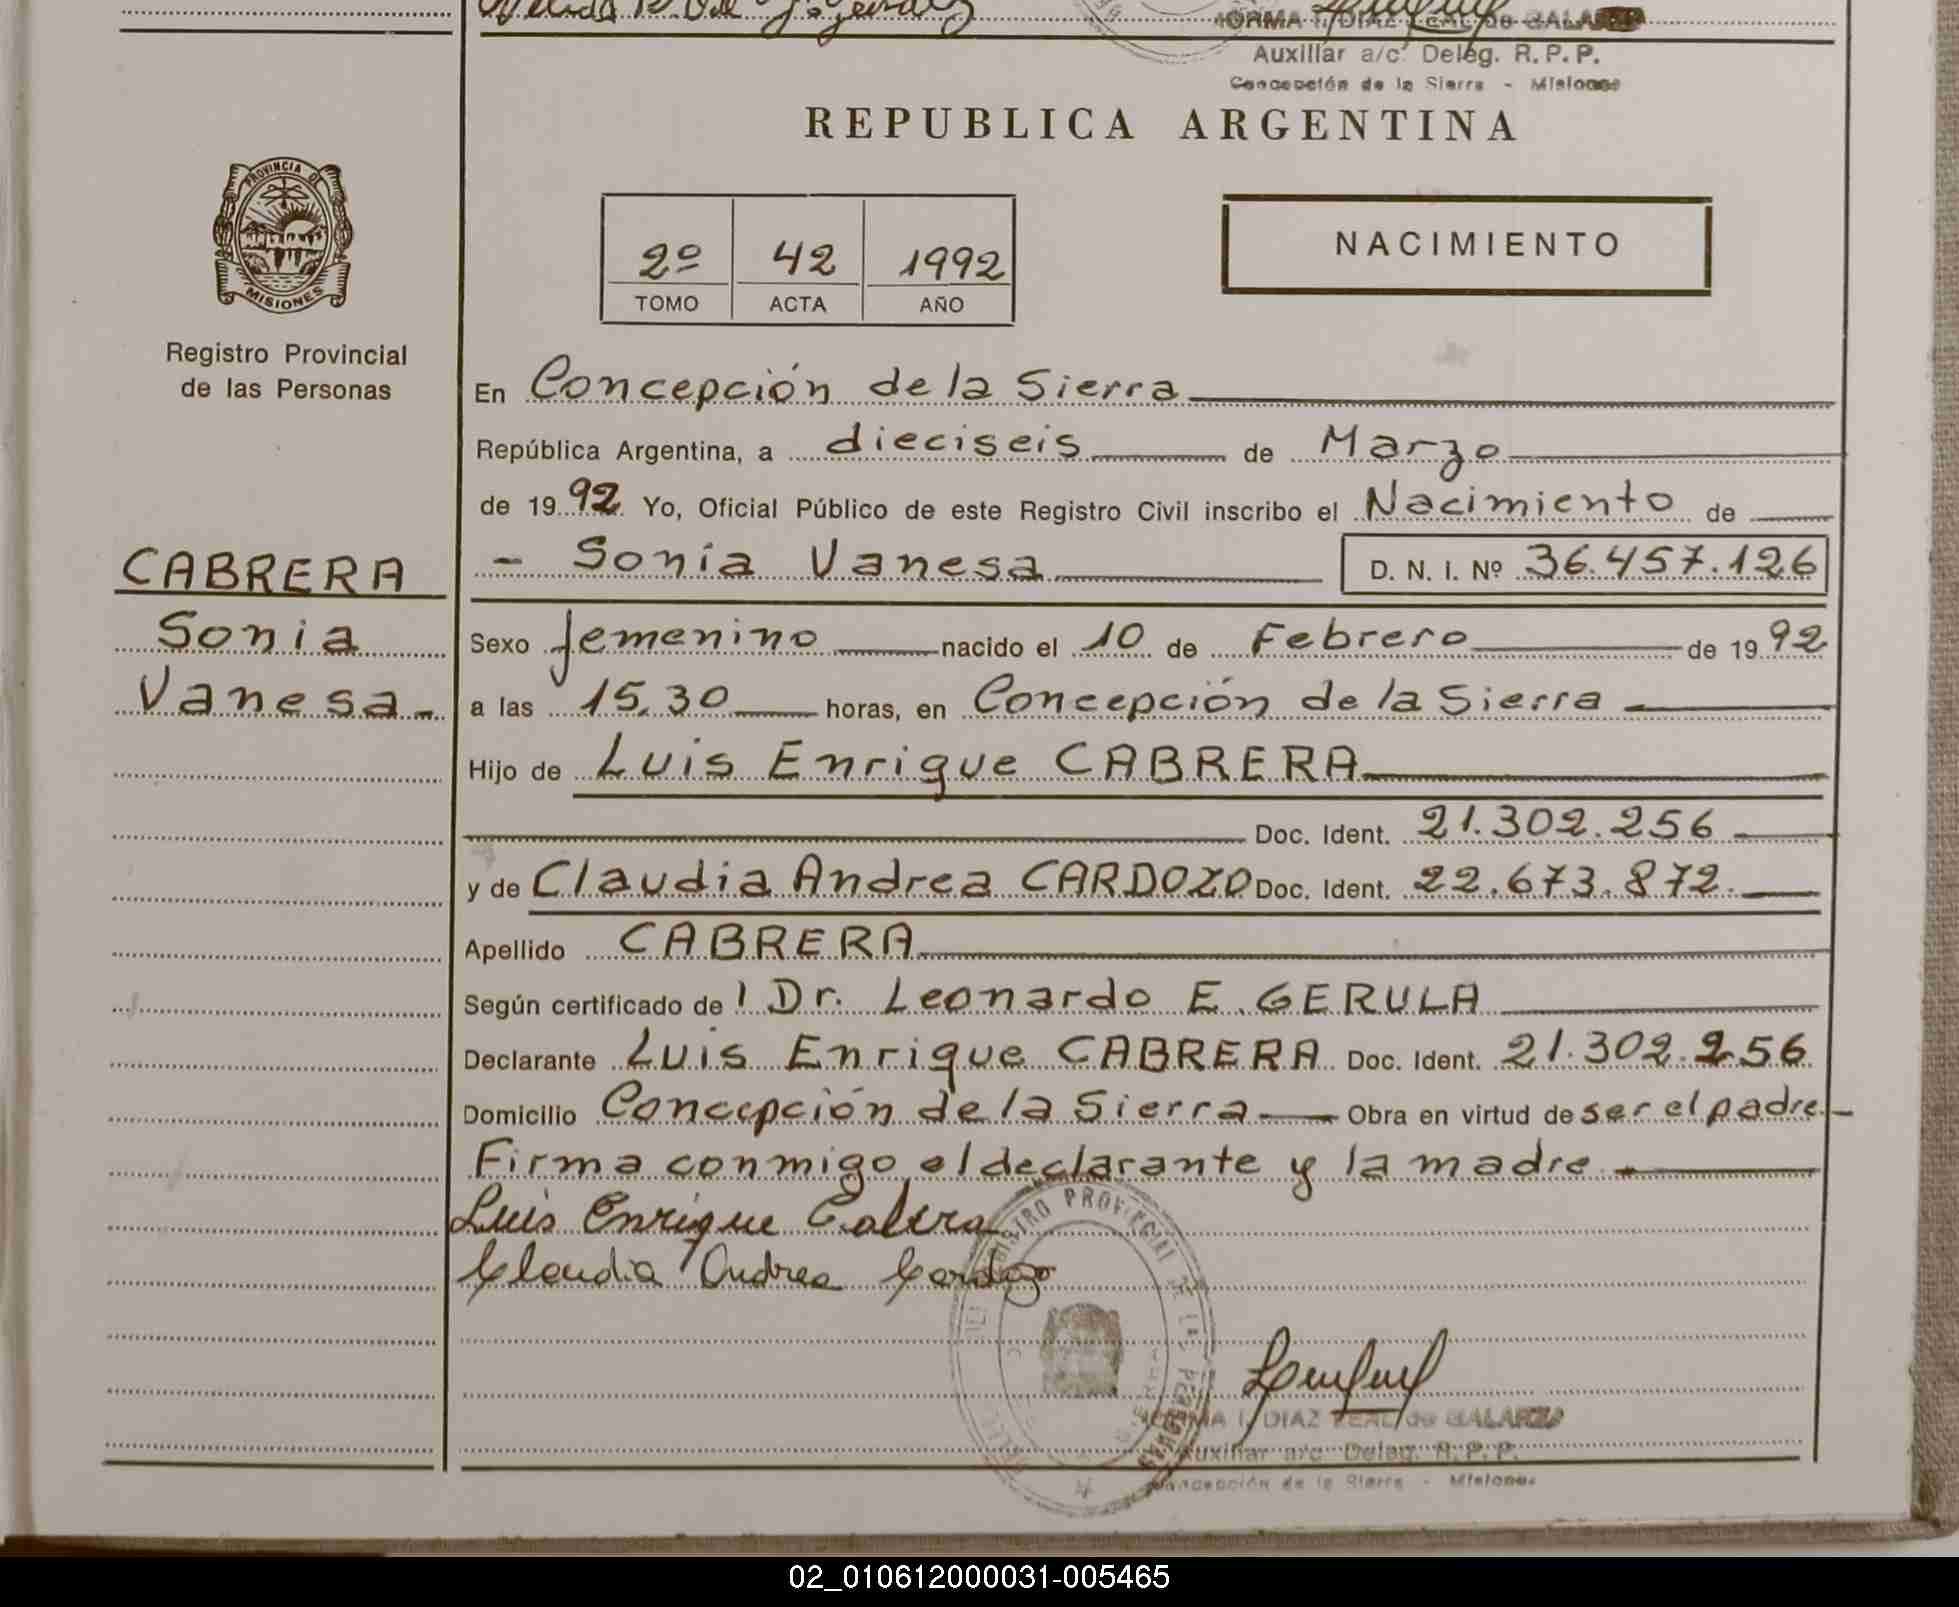 NORMA I. DIAZ LEAL de GALARZA
Auxiliar a/c Deleg. R. P. P.
Concepción de la Sierra - Misiones
REPUBLICA ARGENTINA
PROVINCIA DE
MISIONES
Registro Provincial
de las Personas
2º 42 1992
TOMO ACTA AÑO
NACIMIENTO
En Concepción de la Sierra
República Argentina, a dieciseis de Marzo
de 1992 Yo, Oficial Público de este Registro Civil inscribo el Nacimiento de
- Sonia Vanesa D. N. I. Nº 36.457.126
CABRERA
Sonia
Vanesa.-
Sexo femenino nacido el 10 de Febrero de 1992
a las 15,30 horas, en Concepción de la Sierra
Hijo de Luis Enrique CABRERA
Doc. Ident. 21.302.256
y de Claudia Andrea CARDOZO Doc. Ident. 22.673.872.
Apellido CABRERA
Según certificado del Dr. Leonardo E. GERULA
Declarante Luis Enrique CABRERA Doc. Ident. 21.302.256
Domicilio Concepción de la Sierra Obra en virtud de ser el padre.-
Firma conmigo el declarante y la madre.
Luis Enrique Cabrera
Claudia Andrea Cardozo
REGISTRO PROVINCIAL DE LAS PERSONAS
NORMA I. DIAZ LEAL de GALARZA
Auxiliar a/c Deleg. R. P. P.
Concepción de la Sierra - Misiones
02_010612000031-005465